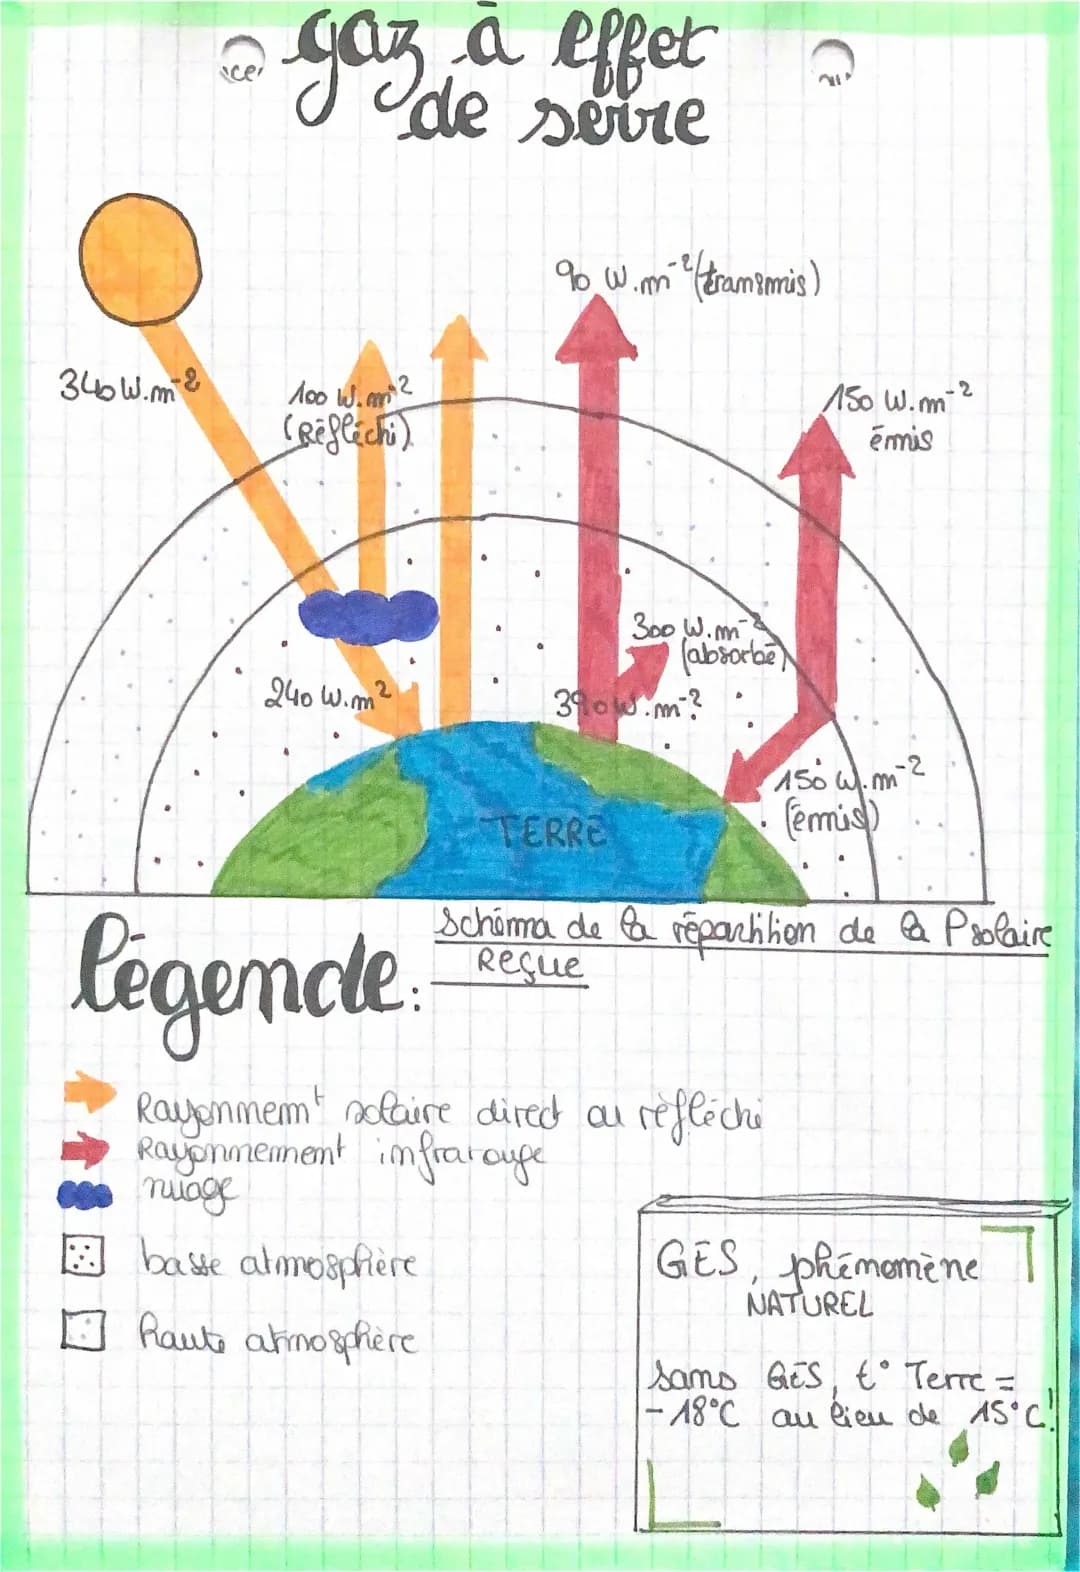 gaz à effet
de serre
340 W.m⁻²
100 W.m⁻²
(Réfléchi)
90 W.m⁻² (transmis)
150 W.m⁻²
émis
300 W.m⁻²
(absorbé)
240 W.m²
390 W.m⁻²
150 W.m⁻²
(émis)
TERRE
Schéma de la répartition de la P solaire
Reçue
légende:
Rayonnemᵗ solaire direct ou réfléchi
Rayonnement infrarouge
nuage
basse atmosphère
Haute atmosphère
GES, phénomène
NATUREL
sans GES, t° Terre =
-18°C au lieu de 15°C!